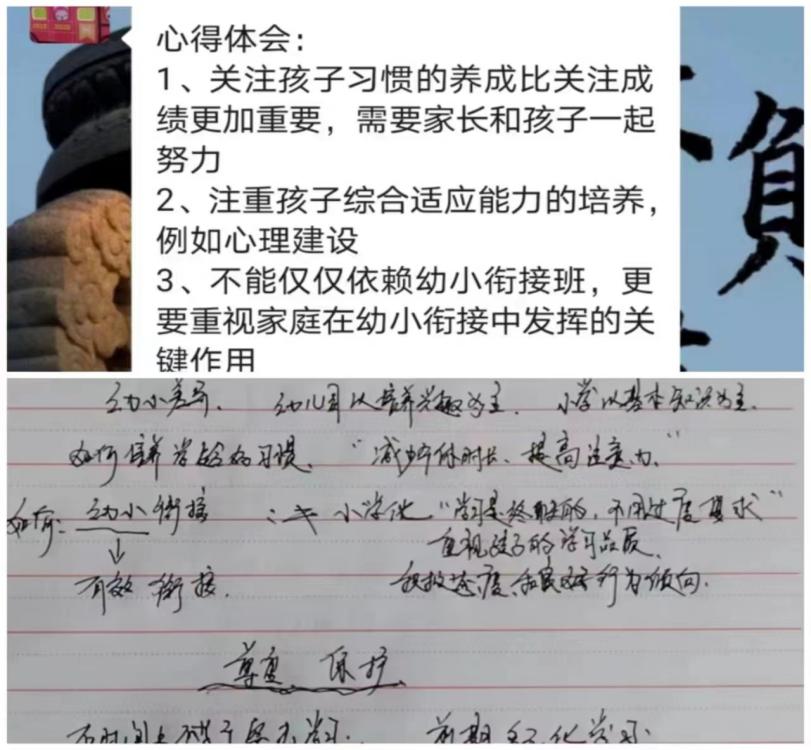 心得体会:
1、关注孩子习惯的养成比关注成
绩更加重要，需要家长和孩子一起
努力
2、注重孩子综合适应能力的培养，
例如心理建设
3、不能仅仅依赖幼小衔接班，更
要重视家庭在幼小衔接中发挥的关
键作用
負
幼小差异. 幼儿园以培养兴趣为主. 小学以基本知识为主.
如何培养 好习惯. “减少 时长、提高注意力.”
如何: 幼小衔接 : 小学化 “学习是终身的, 不用过度要求”
重视孩子的学习品质.
有效衔接. 积极态度 和良好行为倾向.
尊重 保护